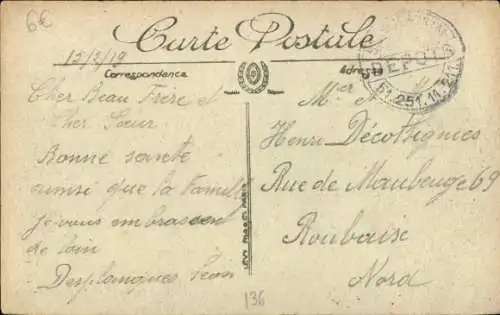 6€
Carte Postale
15/2/19
Correspondence
Adresse
DEPOT
Cher Beau Frère et
Cher Sœur
Bonne santé
ainsi que la famille
je vous embrassent
de loin
Desplanques Léon
Mr et
Henri Décottignies
Rue de Maubeuge 69
Roubaix
Nord
136